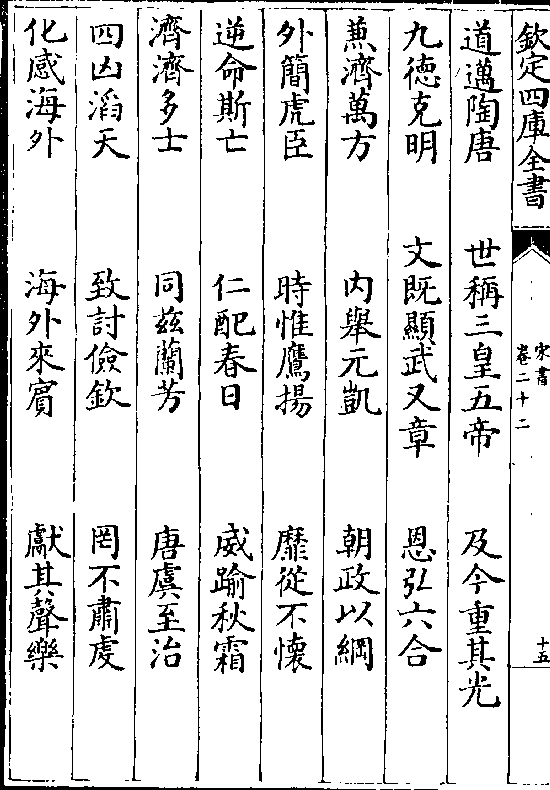 欽定四庫全書
宋書
卷二十二
十五
道邁陶唐 世稱三皇五帝 及今重其光
九德克明 文既顯武又章 恩弘六合
兼濟萬方 內舉元凱 朝政以綱
外簡虎臣 時惟鷹揚 靡從不懷
逆命斯亡 仁配春日 威踰秋霜
濟濟多士 同兹蘭芳 唐虞至治
四凶滔天 致討儉欽 罔不肅虔
化感海外 海外來賓 獻其聲樂